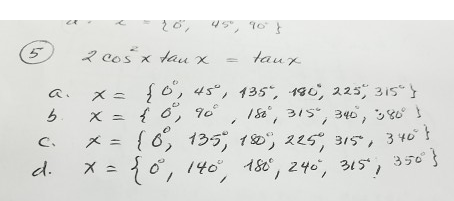 x = {0°, 45°, 90°}
5 2 cos² x tan x = tan x
a. x = {0°, 45°, 135°, 180°, 225°, 315°}
b. x = {0°, 90°, 180°, 315°, 340°, 380°}
c. x = {0°, 135°, 180°, 225°, 315°, 340°}
d. x = {0°, 140°, 180°, 240°, 315°, 350°}